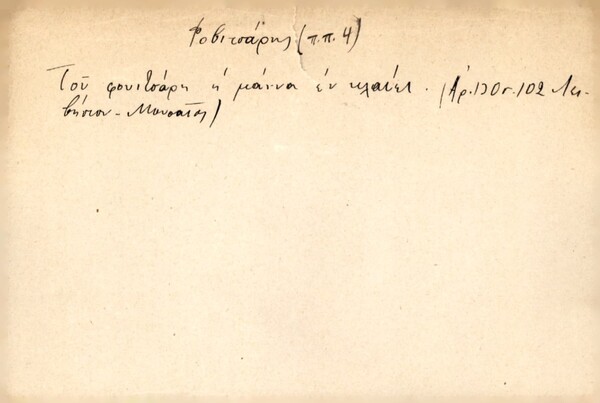 Φοβιτσάρης (π.π. 4)
Τοῦ φουιτσάρη ἡ μάννα ἐν κλαίει. (Ἀρ. 130 σ. 102 Λει-
βήσιον - Μουσαῖος)